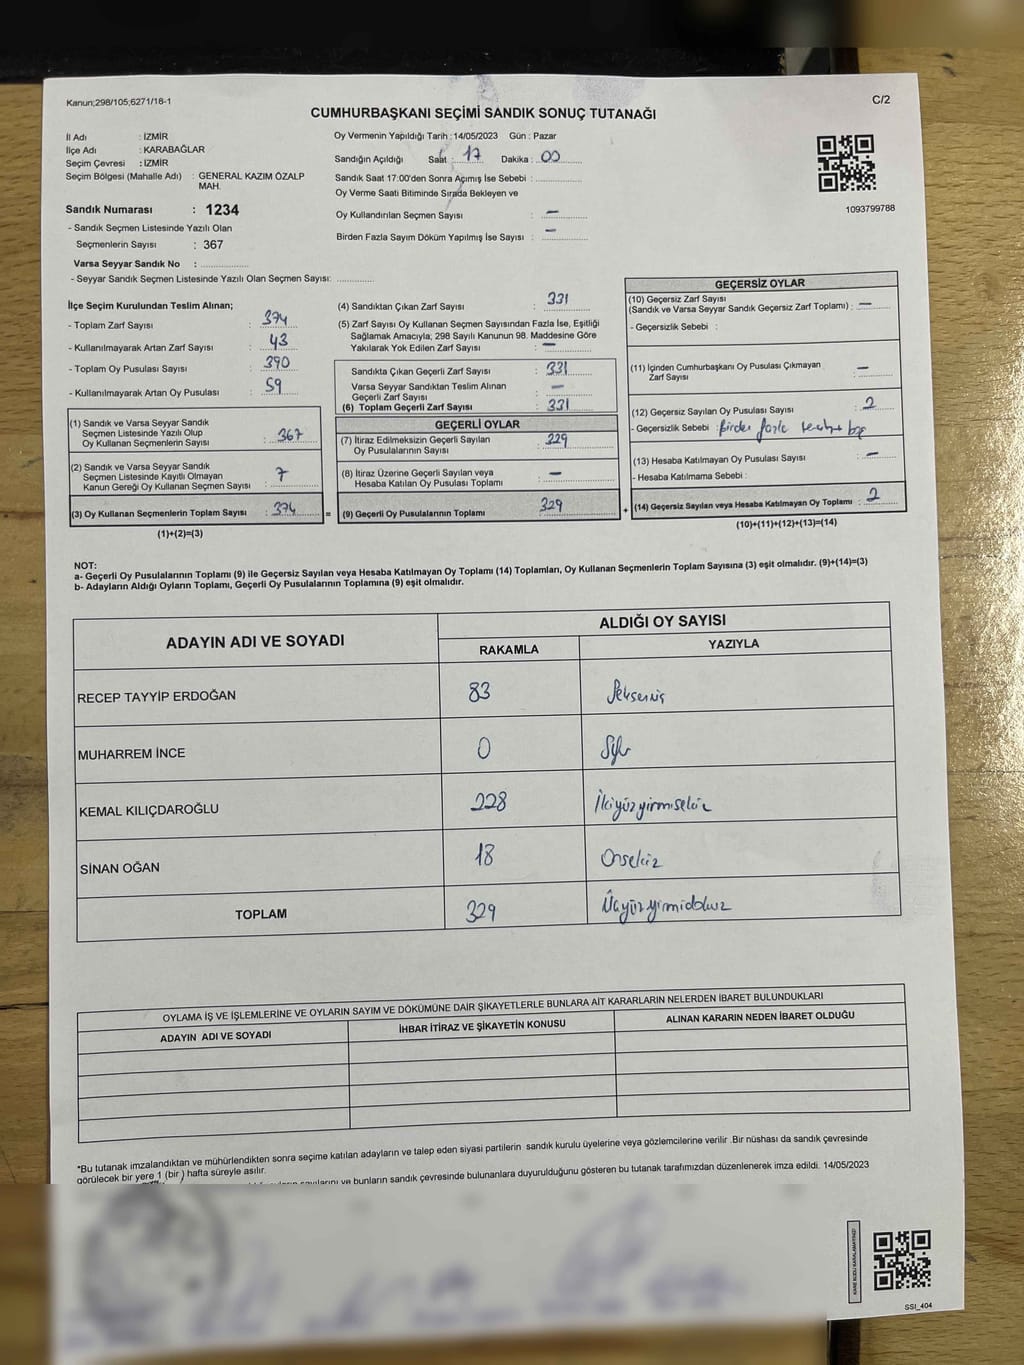 Kanun;298/105;6271/18-1
C/2
CUMHURBAŞKANI SEÇİMİ SANDIK SONUÇ TUTANAĞI
İl Adı : İZMİR
İlçe Adı : KARABAĞLAR
Seçim Çevresi : İZMİR
Seçim Bölgesi (Mahalle Adı) : GENERAL KAZIM ÖZALP
MAH.
Sandık Numarası : 1234
- Sandık Seçmen Listesinde Yazılı Olan
Seçmenlerin Sayısı : 367
Varsa Seyyar Sandık No :
- Seyyar Sandık Seçmen Listesinde Yazılı Olan Seçmen Sayısı:
Oy Vermenin Yapıldığı Tarih : 14/05/2023 Gün : Pazar
Sandığın Açıldığı Saat : 17 Dakika : 00
Sandık Saat 17:00'den Sonra Açımış İse Sebebi :
Oy Verme Saati Bitiminde Sırada Bekleyen ve
Oy Kullandırılan Seçmen Sayısı : —
Birden Fazla Sayım Döküm Yapılmış İse Sayısı : —
1093799788
İlçe Seçim Kurulundan Teslim Alınan;
- Toplam Zarf Sayısı : 374
- Kullanılmayarak Artan Zarf Sayısı : 43
- Toplam Oy Pusulası Sayısı : 390
- Kullanılmayarak Artan Oy Pusulası : 59
(1) Sandık ve Varsa Seyyar Sandık
Seçmen Listesinde Yazılı Olup
Oy Kullanan Seçmenlerin Sayısı : 367
(2) Sandık ve Varsa Seyyar Sandık
Seçmen Listesinde Kayıtlı Olmayan
Kanun Gereği Oy Kullanan Seçmen Sayısı : 7
(3) Oy Kullanan Seçmenlerin Toplam Sayısı : 374 =
(1)+(2)=(3)
(4) Sandıktan Çıkan Zarf Sayısı : 331
(5) Zarf Sayısı Oy Kullanan Seçmen Sayısından Fazla İse, Eşitliği
Sağlamak Amacıyla; 298 Sayılı Kanunun 98. Maddesine Göre
Yakılarak Yok Edilen Zarf Sayısı : —
Sandıkta Çıkan Geçerli Zarf Sayısı : 331
Varsa Seyyar Sandıktan Teslim Alınan
Geçerli Zarf Sayısı : —
(6) Toplam Geçerli Zarf Sayısı : 331
GEÇERLİ OYLAR
(7) İtiraz Edilmeksizin Geçerli Sayılan
Oy Pusulalarının Sayısı : 329
(8) İtiraz Üzerine Geçerli Sayılan veya
Hesaba Katılan Oy Pusulası Toplamı : —
(9) Geçerli Oy Pusulalarının Toplamı : 329 +
GEÇERSİZ OYLAR
(10) Geçersiz Zarf Sayısı
(Sandık ve Varsa Seyyar Sandık Geçersiz Zarf Toplamı) : —
- Geçersizlik Sebebi :
(11) İçinden Cumhurbaşkanı Oy Pusulası Çıkmayan
Zarf Sayısı : —
(12) Geçersiz Sayılan Oy Pusulası Sayısı : 2
- Geçersizlik Sebebi : Birden fazla
(13) Hesaba Katılmayan Oy Pusulası Sayısı : —
- Hesaba Katılmama Sebebi :
(14) Geçersiz Sayılan veya Hesaba Katılmayan Oy Toplamı : 2
(10)+(11)+(12)+(13)=(14)
NOT:
a- Geçerli Oy Pusulalarının Toplamı (9) ile Geçersiz Sayılan veya Hesaba Katılmayan Oy Toplamı (14) Toplamları, Oy Kullanan Seçmenlerin Toplam Sayısına (3) eşit olmalıdır. (9)+(14)=(3)
b- Adayların Aldığı Oyların Toplamı, Geçerli Oy Pusulalarının Toplamına (9) eşit olmalıdır.
ADAYIN ADI VE SOYADI
ALDIĞI OY SAYISI
RAKAMLA YAZIYLA
RECEP TAYYİP ERDOĞAN 83
MUHARREM İNCE 0 Sıfır
KEMAL KILIÇDAROĞLU 228 İkiyüzyirmisekiz
SİNAN OĞAN 18 Onsekiz
TOPLAM 329 Üçyüzyirmidokuz
OYLAMA İŞ VE İŞLEMLERİNE VE OYLARIN SAYIM VE DÖKÜMÜNE DAİR ŞİKAYETLERLE BUNLARA AİT KARARLARIN NELERDEN İBARET BULUNDUKLARI
ADAYIN ADI VE SOYADI İHBAR İTİRAZ VE ŞİKAYETİN KONUSU ALINAN KARARIN NEDEN İBARET OLDUĞU
*Bu tutanak imzalandıktan ve mühürlendikten sonra seçime katılan adayların ve talep eden siyasi partilerin sandık kurulu üyelerine veya gözlemcilerine verilir .Bir nüshası da sandık çevresinde
görülecek bir yere 1 (bir ) hafta süreyle asılır.
ve bunların sandık çevresinde bulunanlara duyurulduğunu gösteren bu tutanak tarafımızdan düzenlenerek imza edildi. 14/05/2023
SSI_404